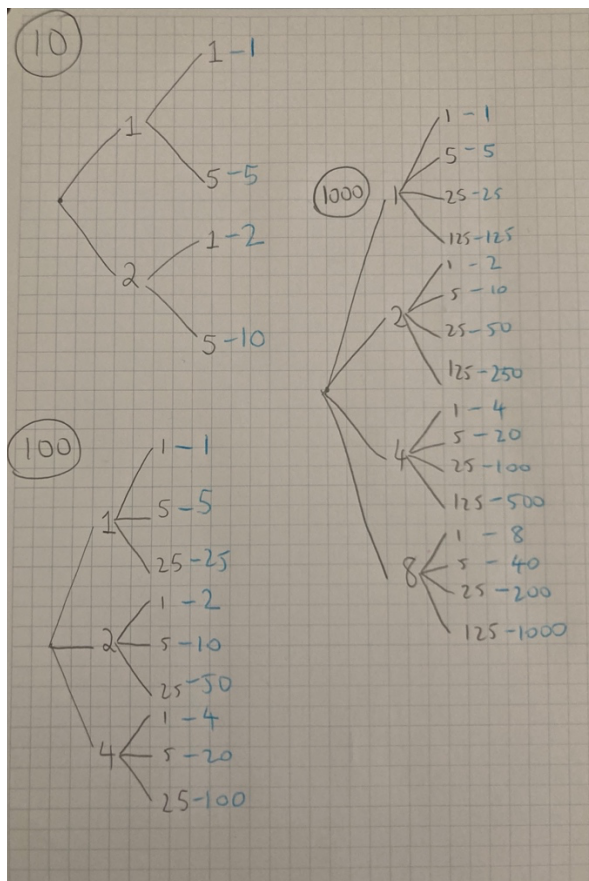 10
1
1-1
5-5
2
1-2
5-10
100
1
1-1
5-5
25-25
2
1-2
5-10
25-50
4
1-4
5-20
25-100
1000
1
1-1
5-5
25-25
125-125
2
1-2
5-10
25-50
125-250
4
1-4
5-20
25-100
125-500
8
1-8
5-40
25-200
125-1000